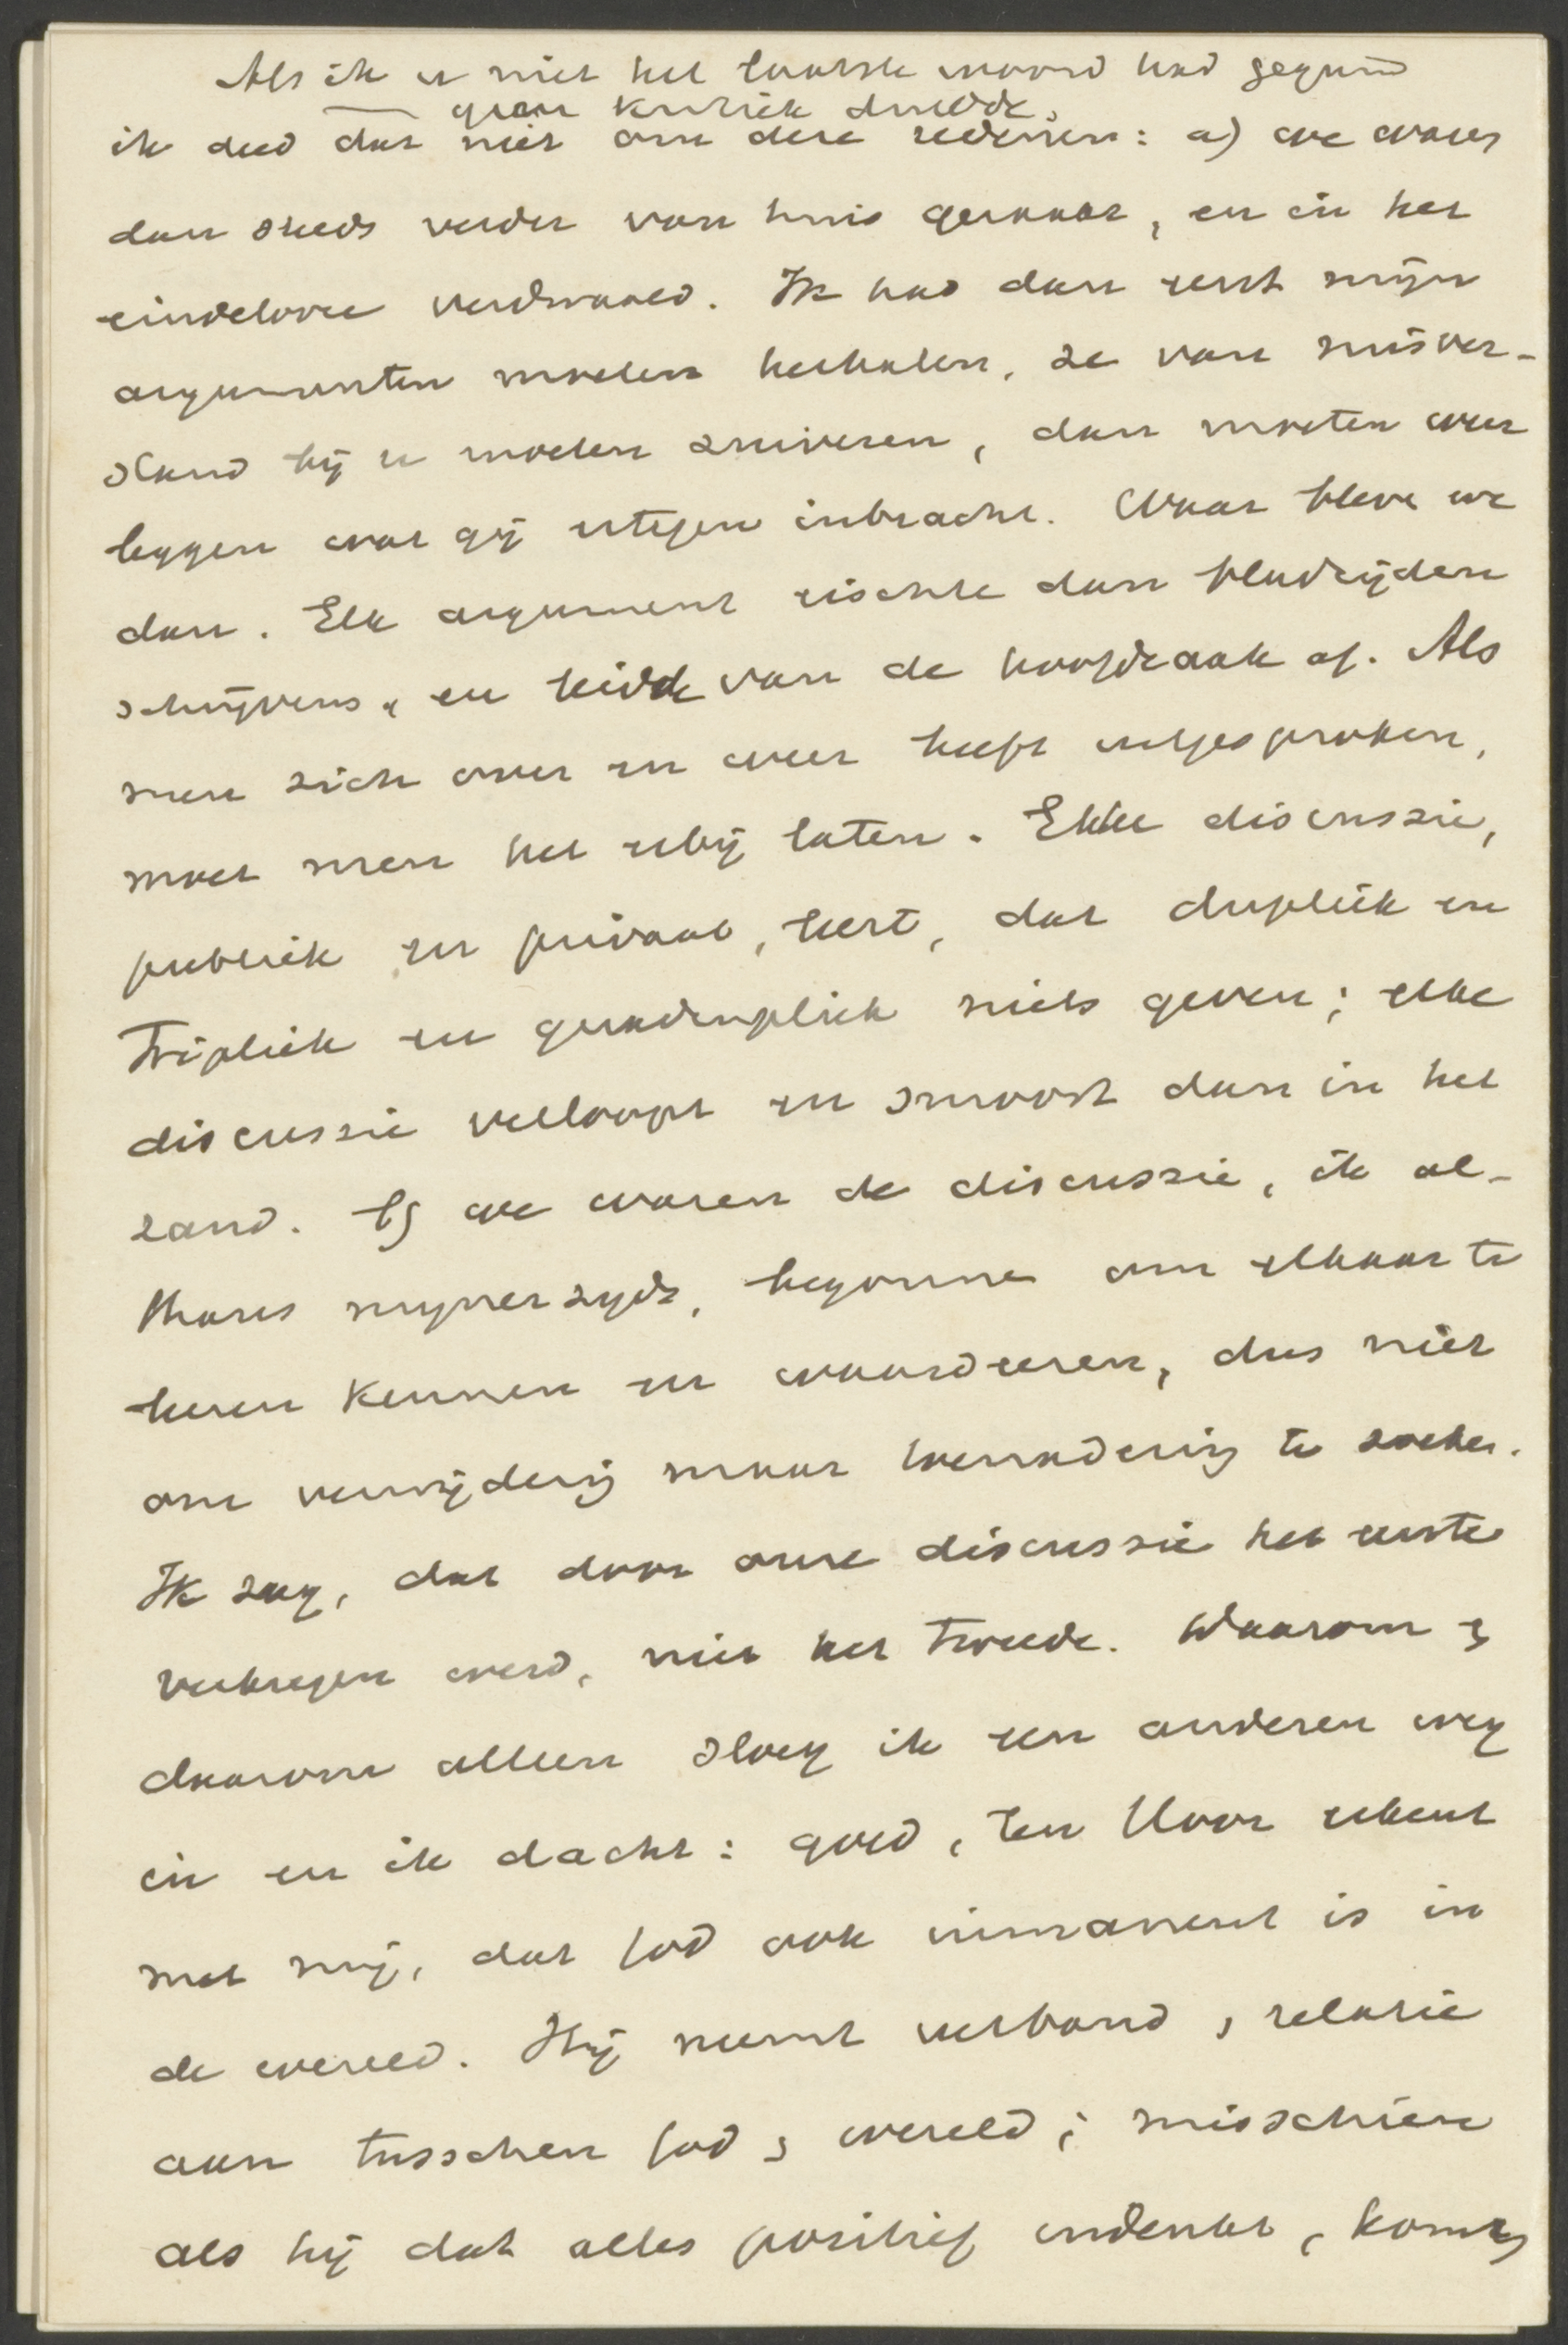 Als ik u niet het laatste woord had gegund
— geen kritiek duldde,
ik deed dat niet om deze redenen: a) we waren
dan steeds verder van huis geraakt, en in het
eindelooze verdwaald. Ik had dan eerst mijn
argumenten moeten herhalen, ze van misver-
stand bij u moeten zuiveren, dan moeten weer
leggen wat gij ertegen inbracht. Waar bleve we
dan. Elk argument eischte dan bladzijden
schrijvens, en leidde van de hoofdzaak af. Als
men zich over en weer heeft uitgesproken,
moet men het erbij laten. Elke discussie,
publiek en privaat, leert, dat dupliek en
tripliek en quadrupliek niets geven; elke
discussie verloopt en smoort dan in het
zand. b) we waren de discussie, ik al-
thans mijnerzijds, begonnen om elkaar te
leren kennen en waardeeren, dus niet
om verwijdering maar toenadering te zoeken.
Ik zag, dat door onze discussie het eerste
verkregen werd, niet het tweede. Waarom &
daarom alleen sloeg ik een anderen weg
in en ik dacht: goed, ten Hoor erkent
met mij, dat God ook immanent is in
de wereld. Hij neemt verband, relatie
aan tusschen God & wereld; misschien
als hij dat alles positief indenkt, komt